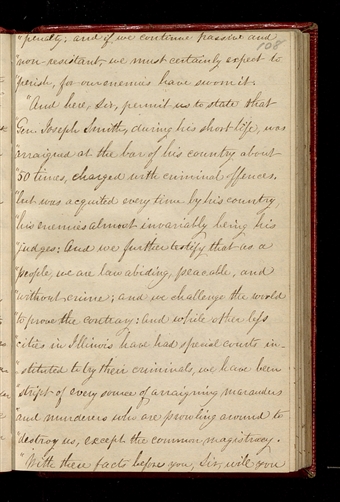 "penalty: and if we continue passive and
108
"non-resistant, we must certainly expect to
"perish, for our enemies have sworn it.
"And here, Sir, permit us to state that
"Gen. Joseph Smith, during his short life, was
"arraigned at the bar of his country about
"50 times, charged with criminal offences,
"but was acquited every time by his country,
"his enemies almost invariably being his
"judges: And we further testify that as a
"people, we are law abiding, peacable, and
"without crime; and we challenge the world
"to prove the contrary: And while other less
"cities in Illinois have had special courts in-
"stituted to try their criminals, we have been
"stript of every source of arraigning marauders
"and murderers who are prowling around to
"destroy us, except the common magistracy.
"With these facts before you, Sir, will you